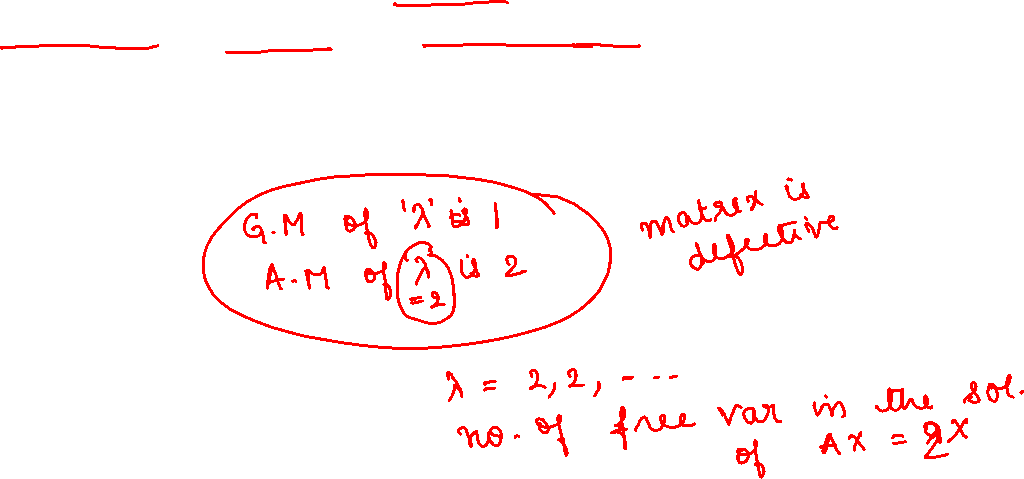 G.M of 'λ' is 1
A.M of 'λ' is 2
= 2
matrix is
defective
λ = 2, 2, ----
no. of free var in the sol.
of AX = 2X